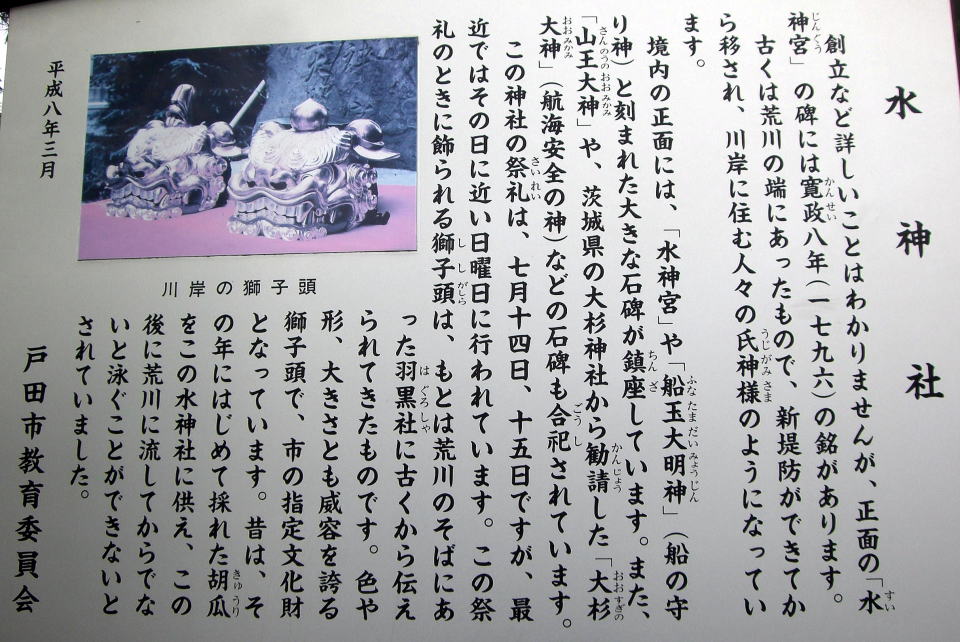 水神社
創立など詳しいことはわかりませんが、正面の「水
神宮」の碑には寛政八年（一七九六）の銘があります。
古くは荒川の端にあったもので、新堤防ができてか
ら移され、川岸に住む人々の氏神様のようになってい
ます。
境内の正面には、「水神宮」や「船玉大明神」（船の守
り神）と刻まれた大きな石碑が鎮座しています。また、
「山王大神」や、茨城県の大杉神社から勧請した「大杉
大神」（航海安全の神）などの石碑も合祀されています。
この神社の祭礼は、七月十四日、十五日ですが、最
近ではその日に近い日曜日に行われています。この祭
礼のときに飾られる獅子頭は、もとは荒川のそばにあ
った羽黒社に古くから伝え
られてきたものです。色や
形、大きさとも威容を誇る
獅子頭で、市の指定文化財
となっています。昔は、そ
の年にはじめて採れた胡瓜
をこの水神社に供え、この
後に荒川に流してからでな
いと泳ぐことができないと
されていました。
川岸の獅子頭
平成八年三月
戸田市教育委員会